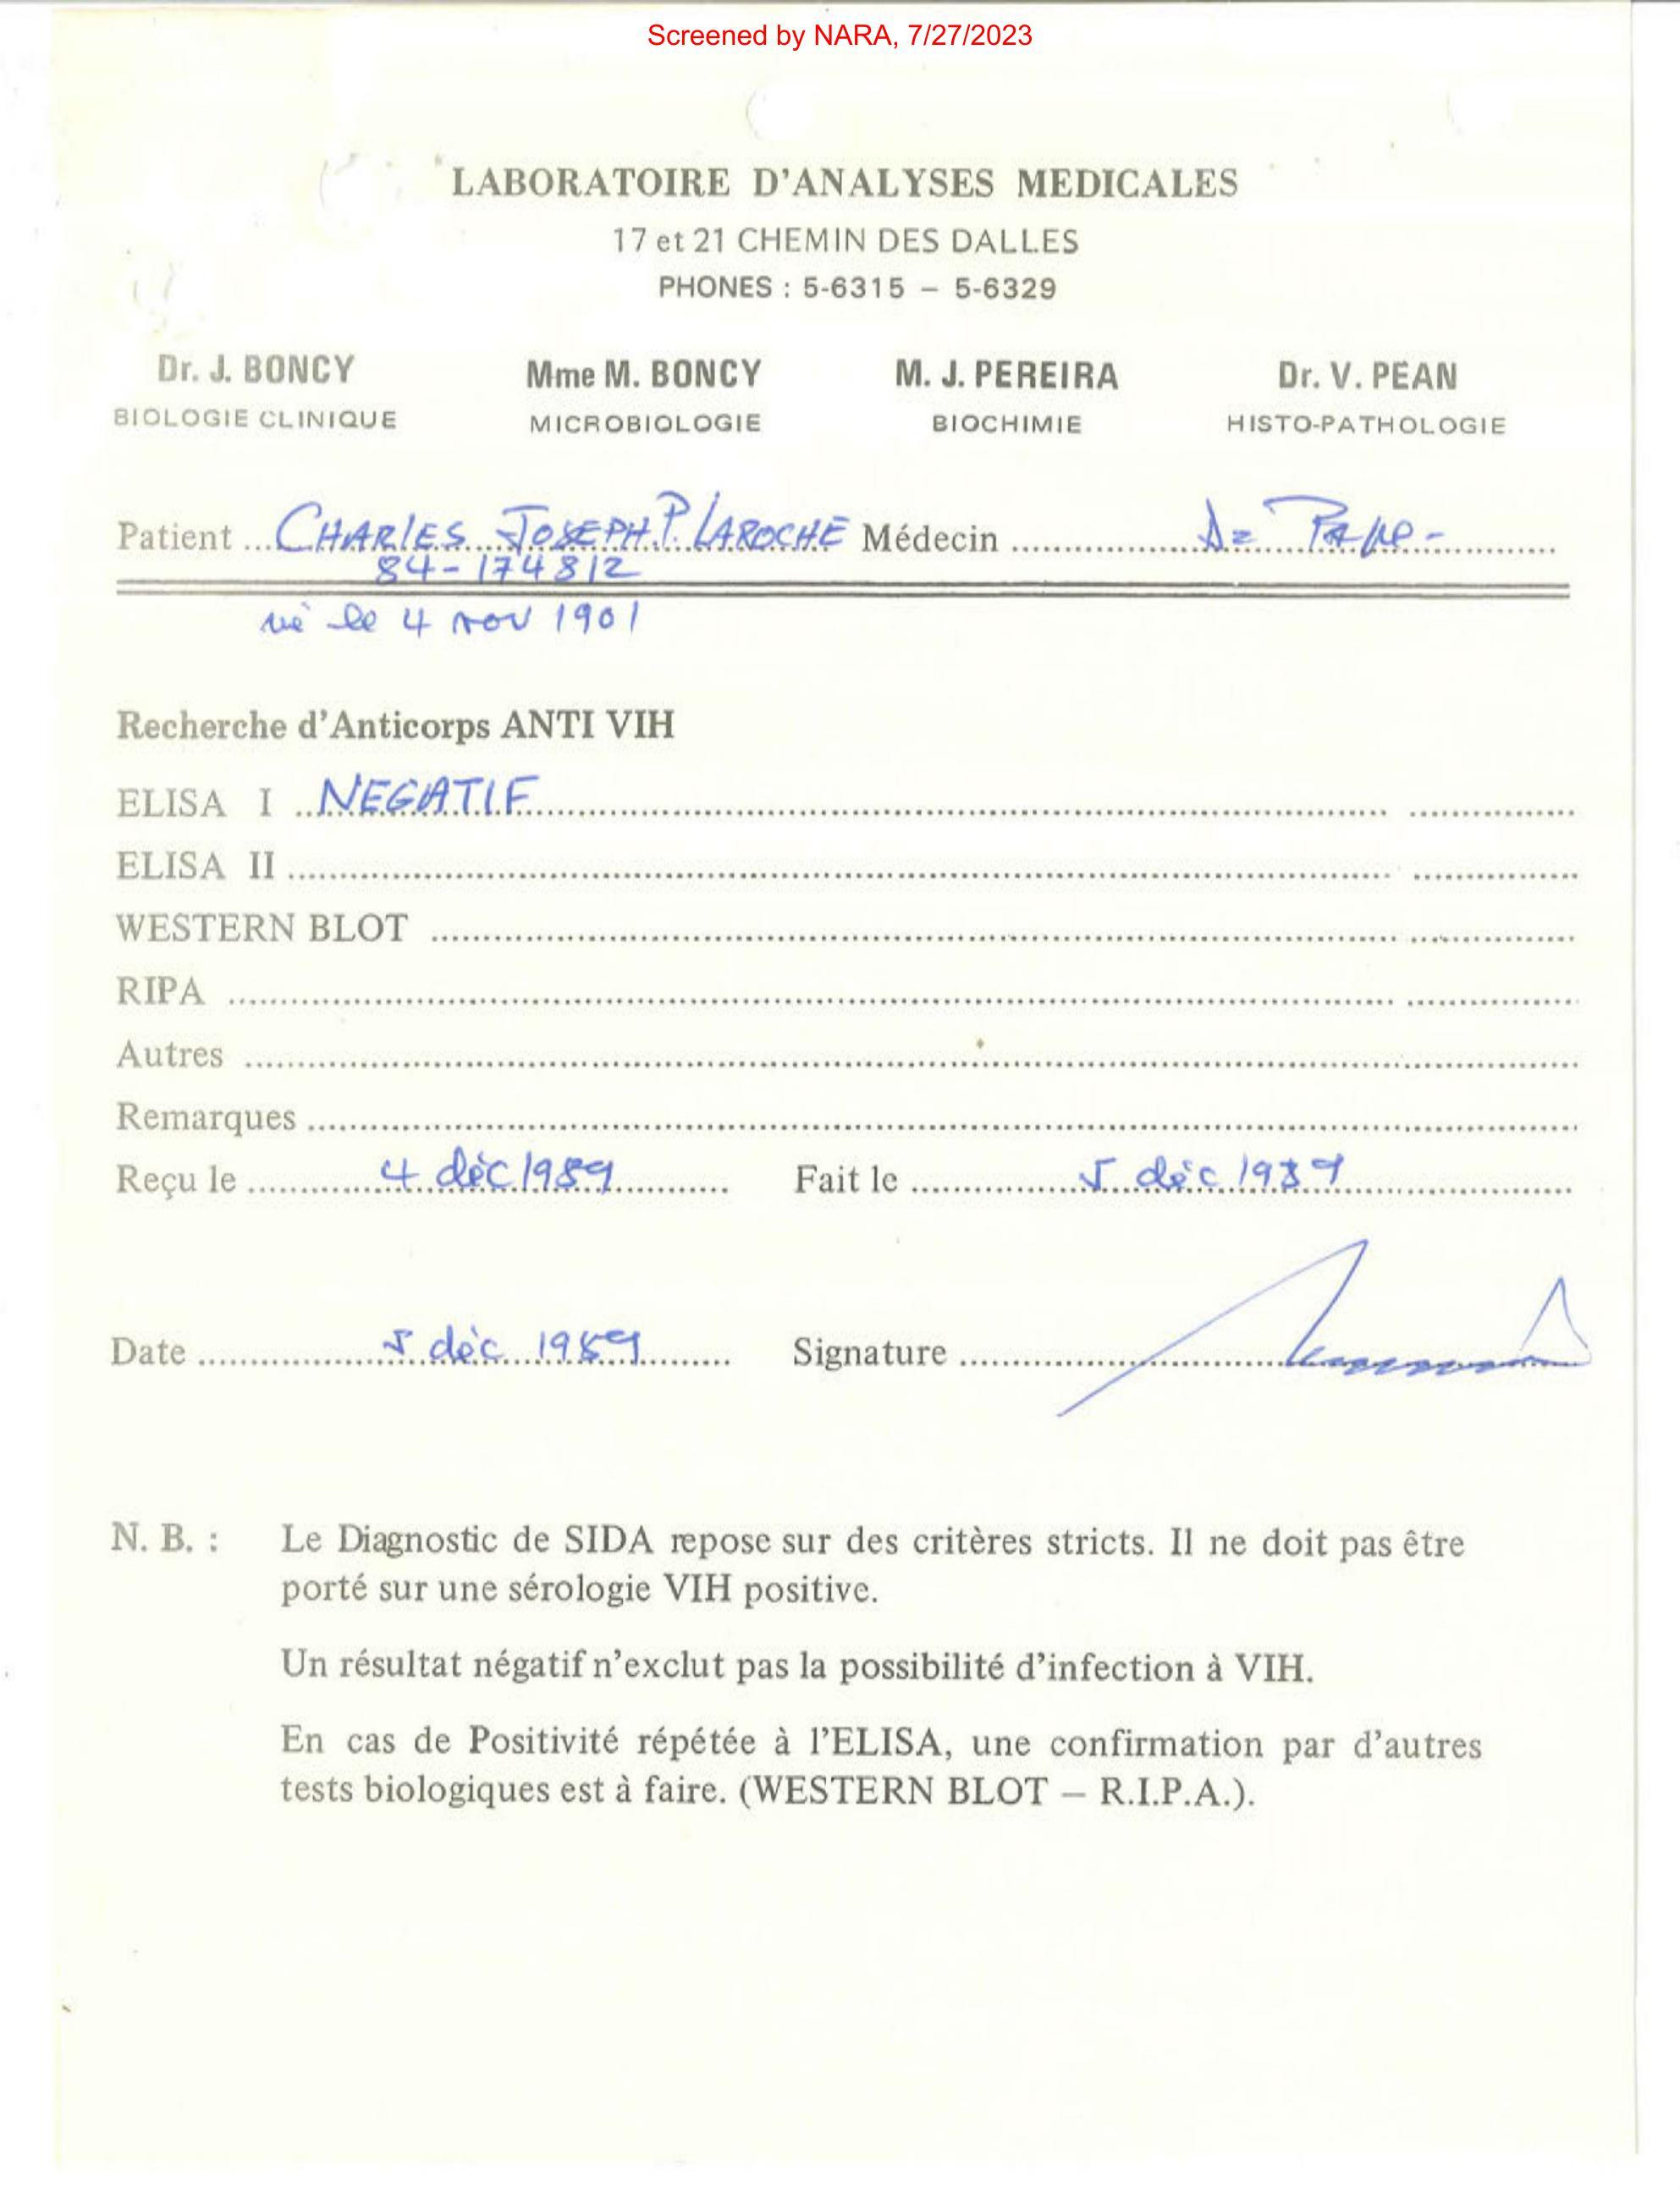 Screened by NARA, 7/27/2023
LABORATOIRE D'ANALYSES MEDICALES
17 et 21 CHEMIN DES DALLES
PHONES : 5-6315 – 5-6329
Dr. J. BONCY Mme M. BONCY M. J. PEREIRA Dr. V. PEAN
BIOLOGIE CLINIQUE MICROBIOLOGIE BIOCHIMIE HISTO-PATHOLOGIE
Patient CHARLES JOSEPH P. LAROCHE Médecin Pape
84-174812
né le 4 nov 1901
Recherche d'Anticorps ANTI VIH
ELISA I NEGATIF
ELISA II
WESTERN BLOT
RIPA
Autres
Remarques
Reçu le 4 déc 1989 Fait le 5 déc 1989
Date 5 déc 1989 Signature
N. B. : Le Diagnostic de SIDA repose sur des critères stricts. Il ne doit pas être
porté sur une sérologie VIH positive.
Un résultat négatif n'exclut pas la possibilité d'infection à VIH.
En cas de Positivité répétée à l'ELISA, une confirmation par d'autres
tests biologiques est à faire. (WESTERN BLOT – R.I.P.A.).